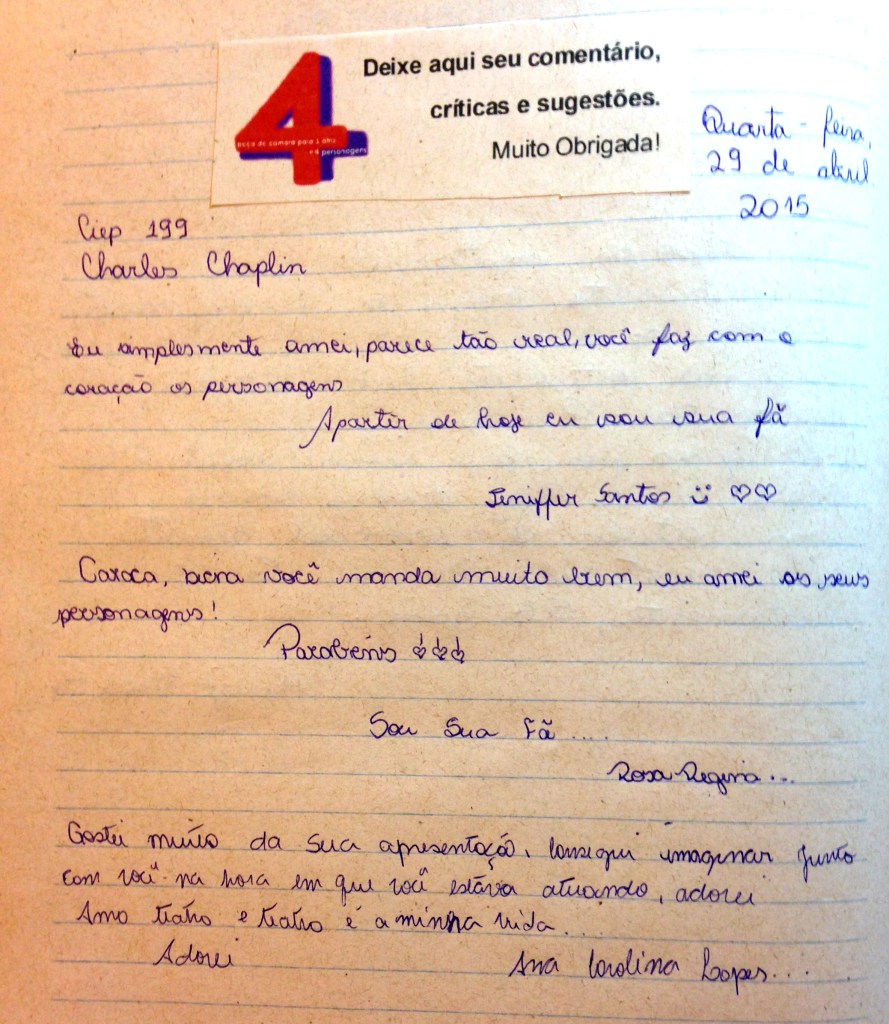 Deixe aqui seu comentário,
críticas e sugestões.
Muito Obrigada!
4
peça de câmara para 1 atriz
e 4 personagens
Quarta-feira,
29 de abril
2015
Ciep 199
Charles Chaplin
Eu simplesmente amei, parece tão real, você faz com o
coração os personagens
Apartir de hoje eu sou sua fã
Jeniffer Santos
Caraca, cara você manda muito bem, eu amei os seus
personagens!
Parabéns
Sou Sua Fã....
Rosa Regina...
Gostei muito da sua apresentação, Consegui imaginar junto
com você na hora em que você estava atuando, adorei
Amo teatro e teatro é a minha vida...
Adorei
Ana Carolina Lopes...